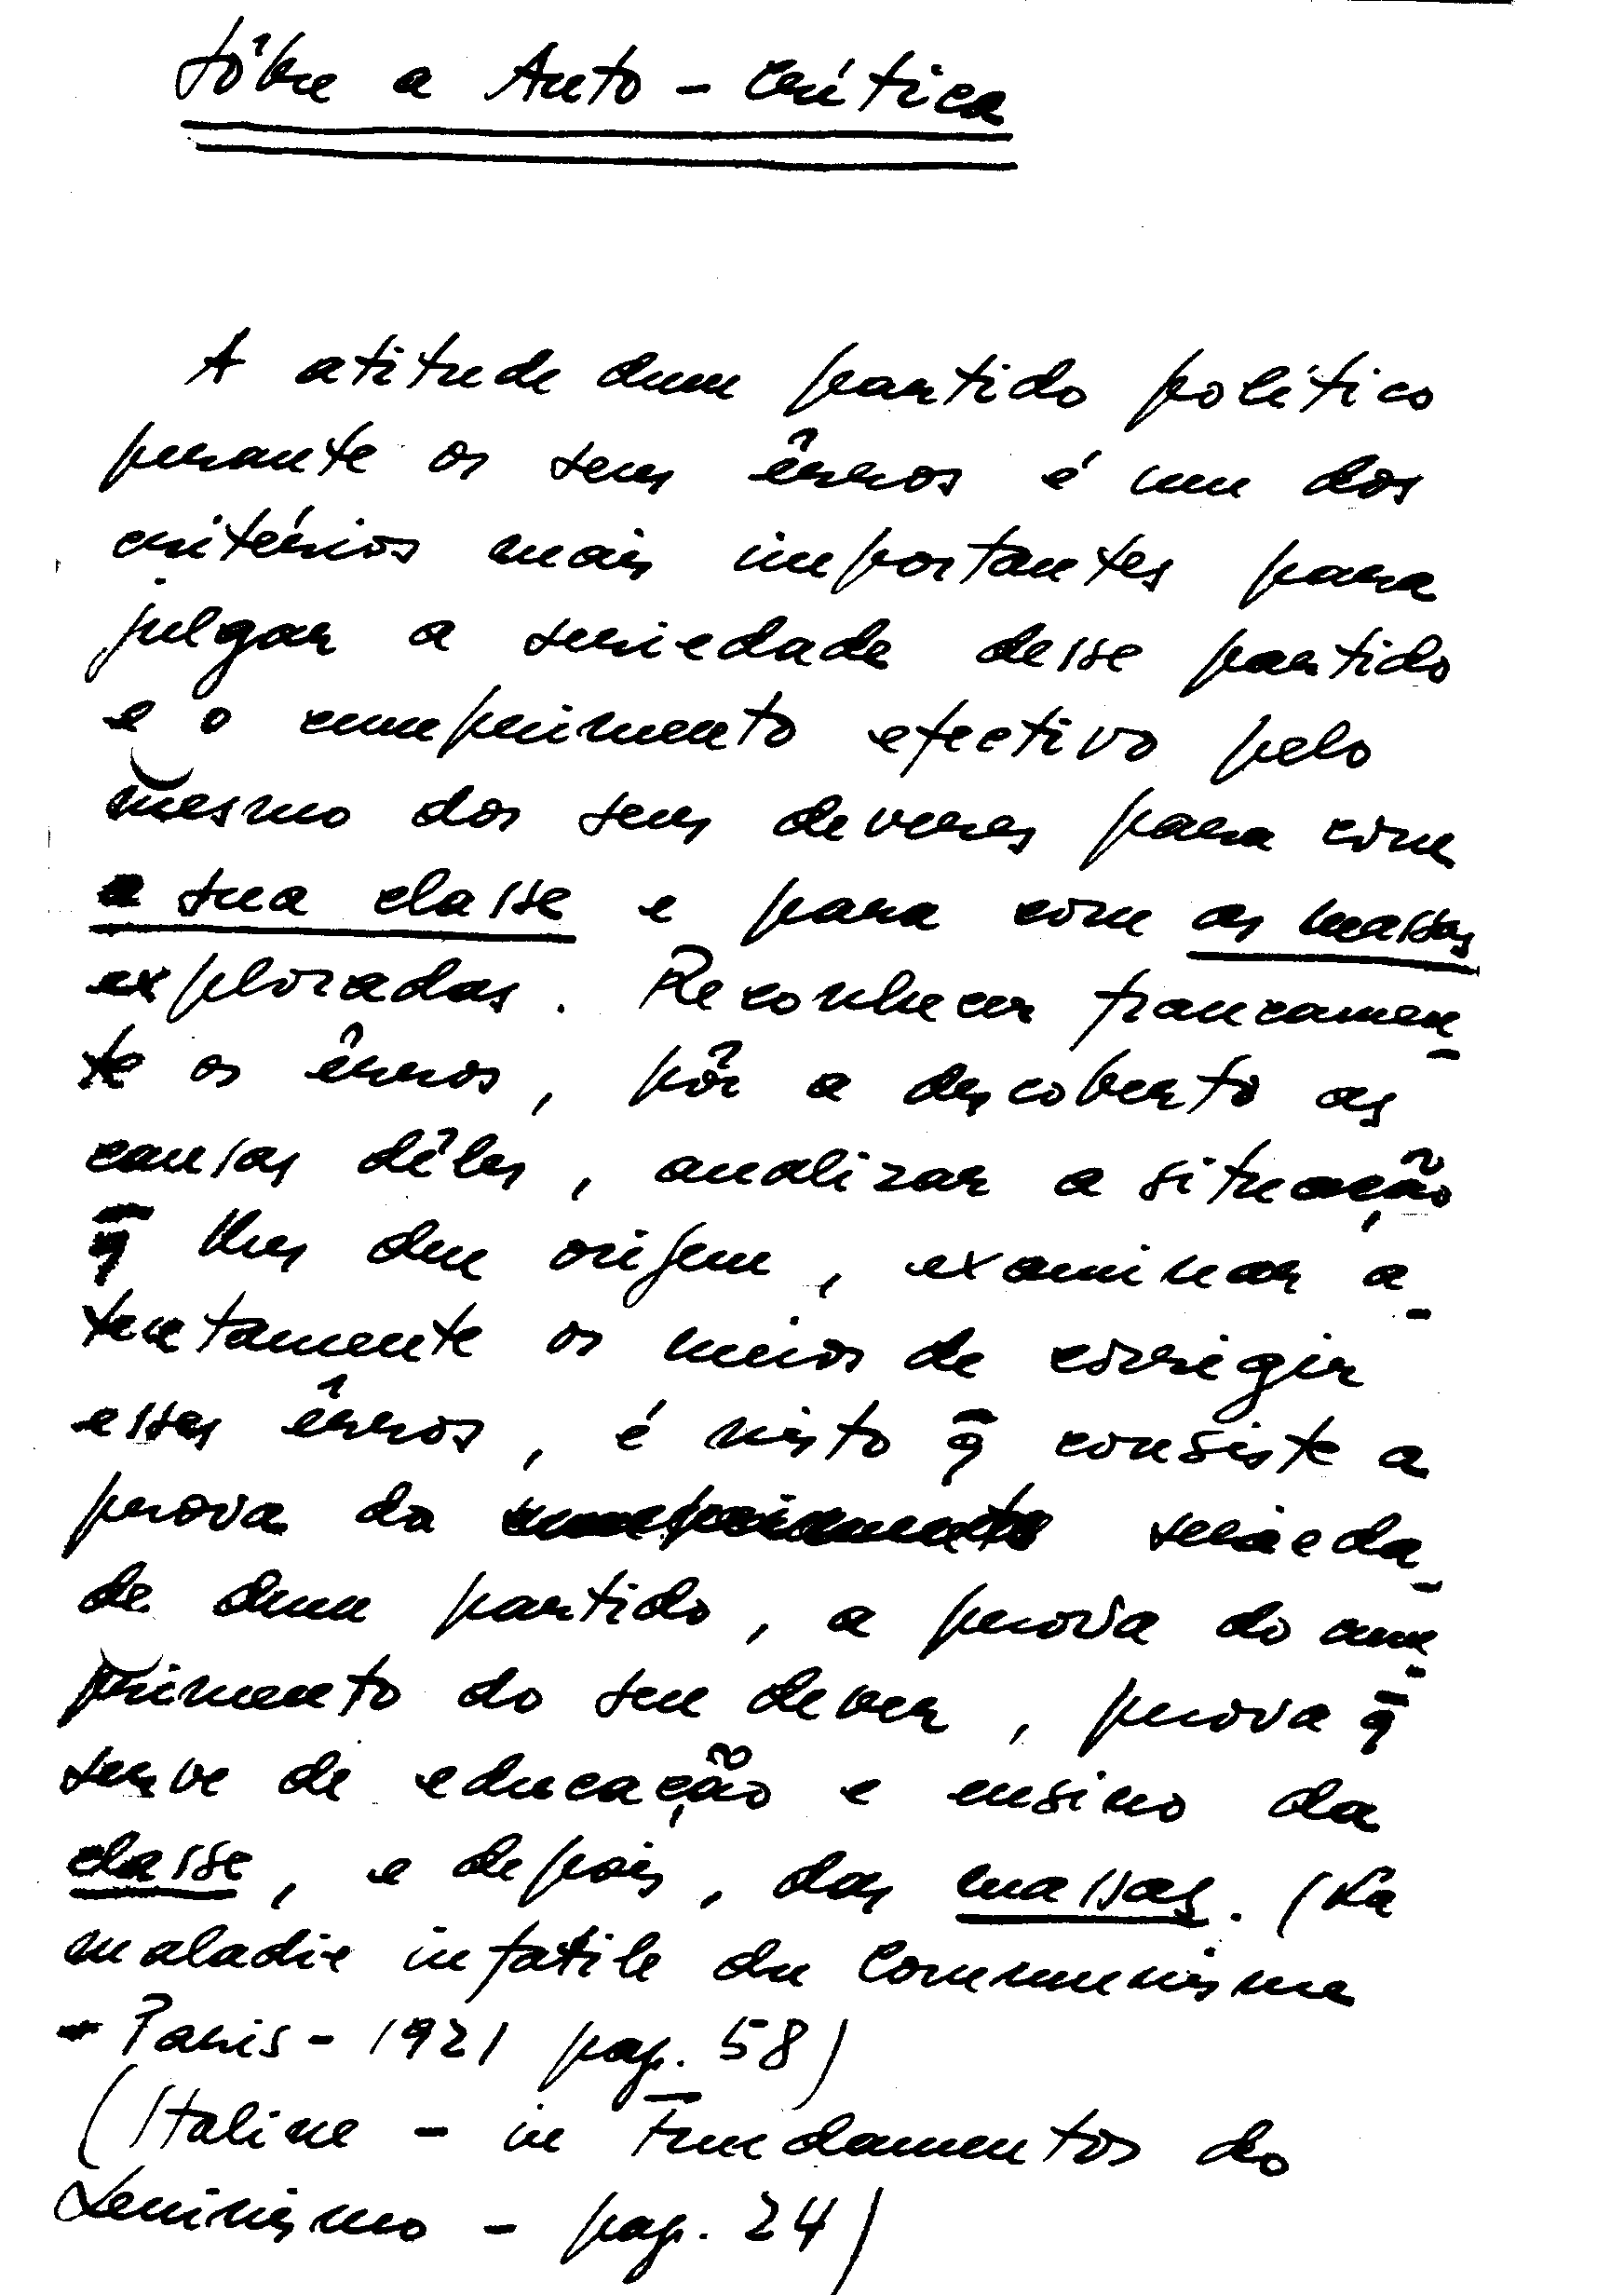 Sôbre a Auto-Crítica
A atitude dum partido político
perante os seus êrros é um dos
critérios mais importantes para
julgar a seriedade desse partido
e o cumprimento efectivo pelo
mesmo dos seus deveres para com
a sua classe e para com as massas
exploradas. Reconhecer francamen-
te os êrros, pôr a descoberto as
causas dêles, analizar a situação
q̄ lhes deu origem, examinar a-
tentamente os meios de corrigir
esses êrros, é nisto q̄ consiste a
prova da cumprimento serieda-
de dum partido, a prova do cum-
primento do seu dever, prova q̄
serve de educação e ensino da
classe, e depois, das massas. (La
maladie infatile du Communisme
- Paris - 1921 pag. 58)
(Staline - in Fundamentos do
Leninismo - pag. 24)